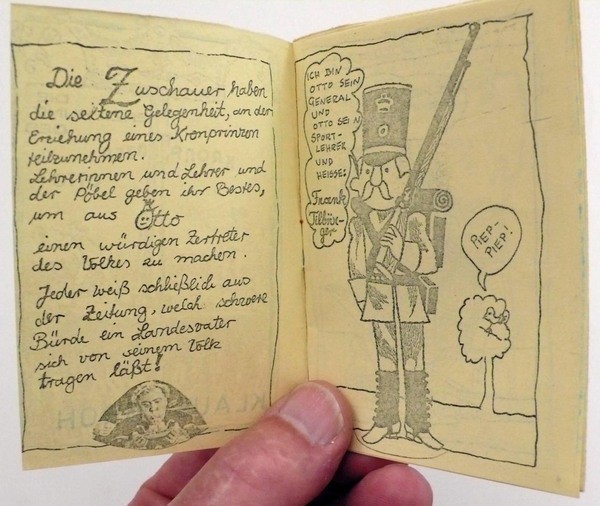 Die Zuschauer haben
die seltene Gelegenheit, an der
Erziehung eines Kronprinzen
teilzunehmen.
Lehrerinnen und Lehrer und
der Pöbel geben ihr Bestes,
um aus Otto
einen würdigen Zertreter
des Volkes zu machen.
Jeder weiß schließlich aus
der Zeitung, welch schwere
Bürde ein Landesvater
sich von seinem Volk
tragen läßt!
ICH BIN
OTTO SEIN
GENERAL
UND
OTTO SEIN
SPORT-
LEHRER
UND
HEISSE:
Frank
Tilbür-
ger
PIEP-
PIEP!